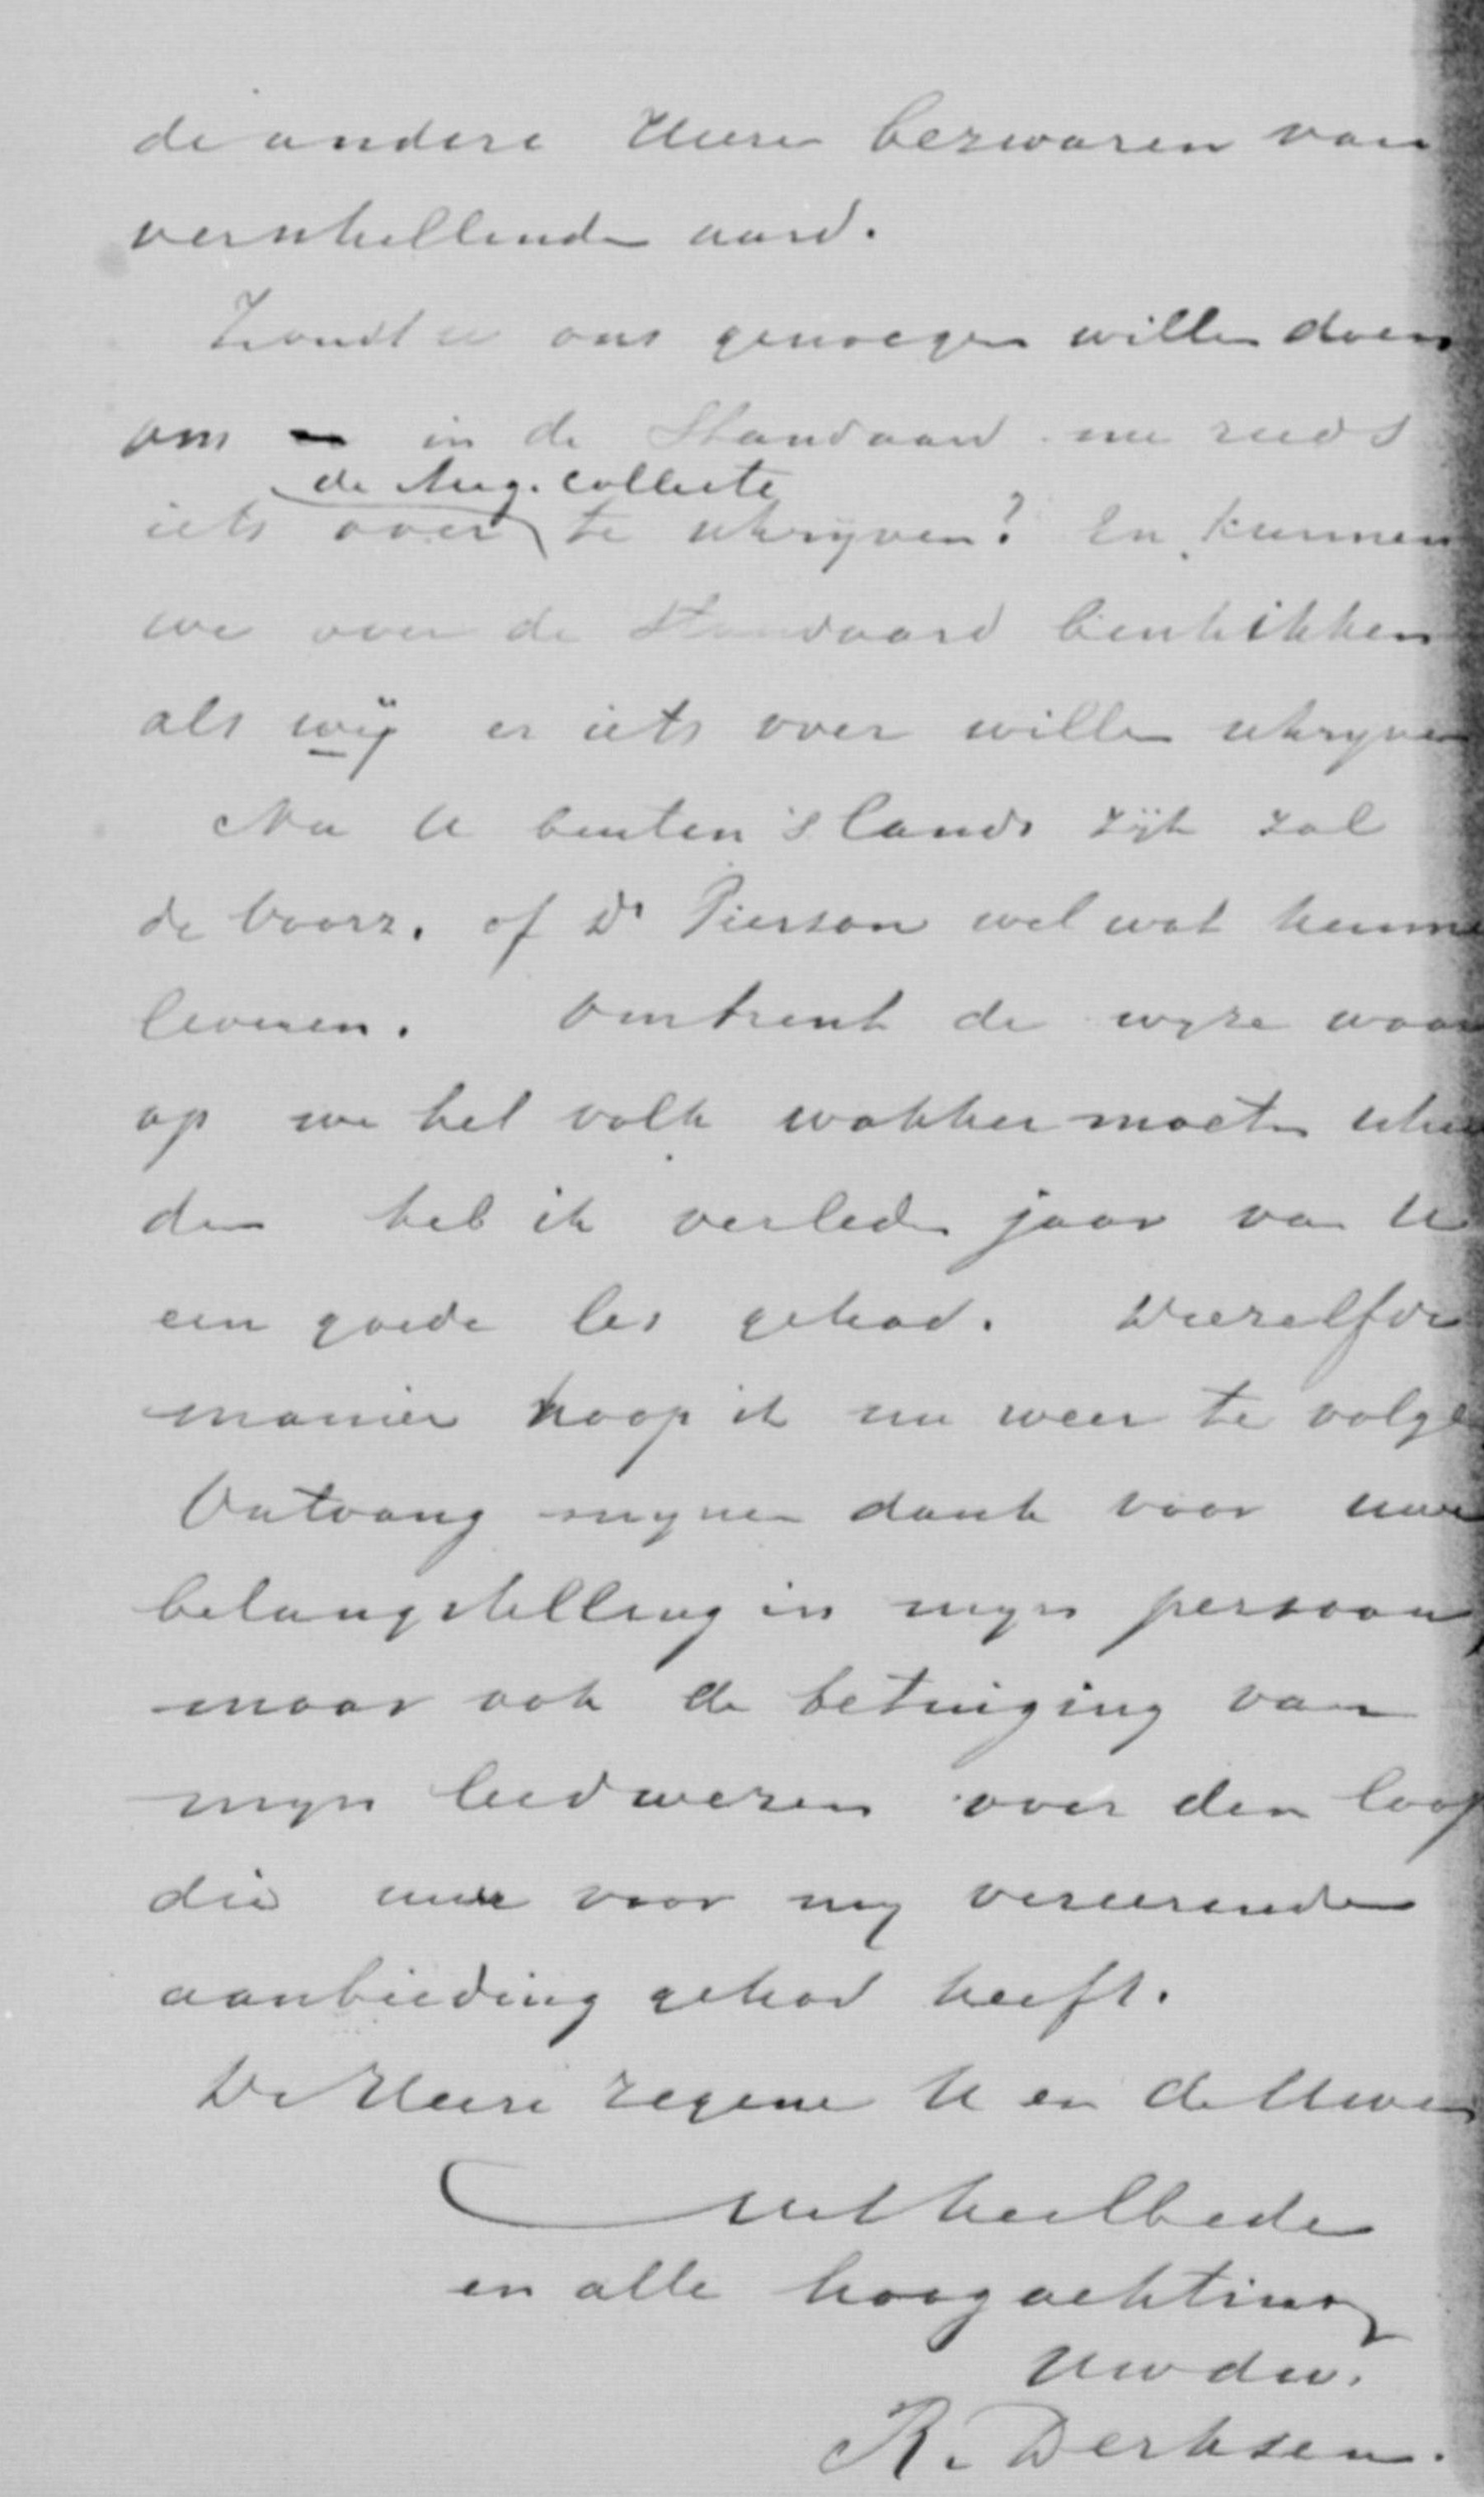 de andere Heeren bezwaren van
verschillenden aard.
Zoudt u ons genoegen willen doen
om in de Standaard nu reeds
de Aug. collecte
iets over te schrijven? En kunnen
we over de Standaard beschikken
als wij er iets over willen schrijven
Nu U buiten 's lands zijt zal
de Voorz. of Dr Pierson wel wat kunnen
leveren. Omtrent de wyze waar
op we het volk wakker moeten schud
den heb ik verleden jaar van U
een goede les gehad. Diezelfde
manier hoop ik nu weer te volgen
Ontvang mynen dank voor uwe
belangstelling in myn persoon,
maar ook de betuiging van
myn leedwezen over den loop
die uwe voor my vereerende
aanbieding gehad heeft.
De Heere zegene U en de Uwen
Met heilbede
en alle hoogachting
Uwdw.
R. Derksen.